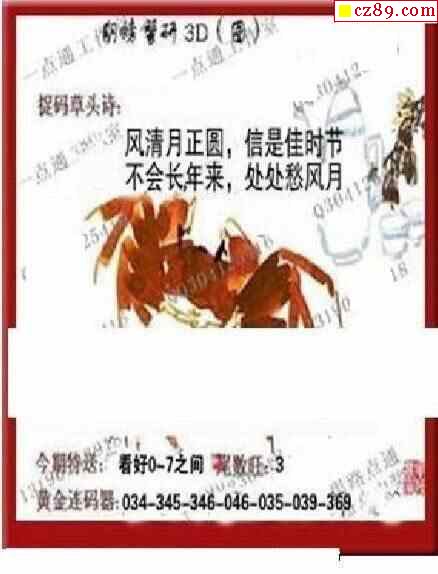 cz89.com
3D（图）
捉码草头诗:
风清月正圆，信是佳时节
不会长年来，处处愁风月
今期特送： 看好0~7之间 尾数旺: 3
黄金连码器: 034-345-346-046-035-039-369